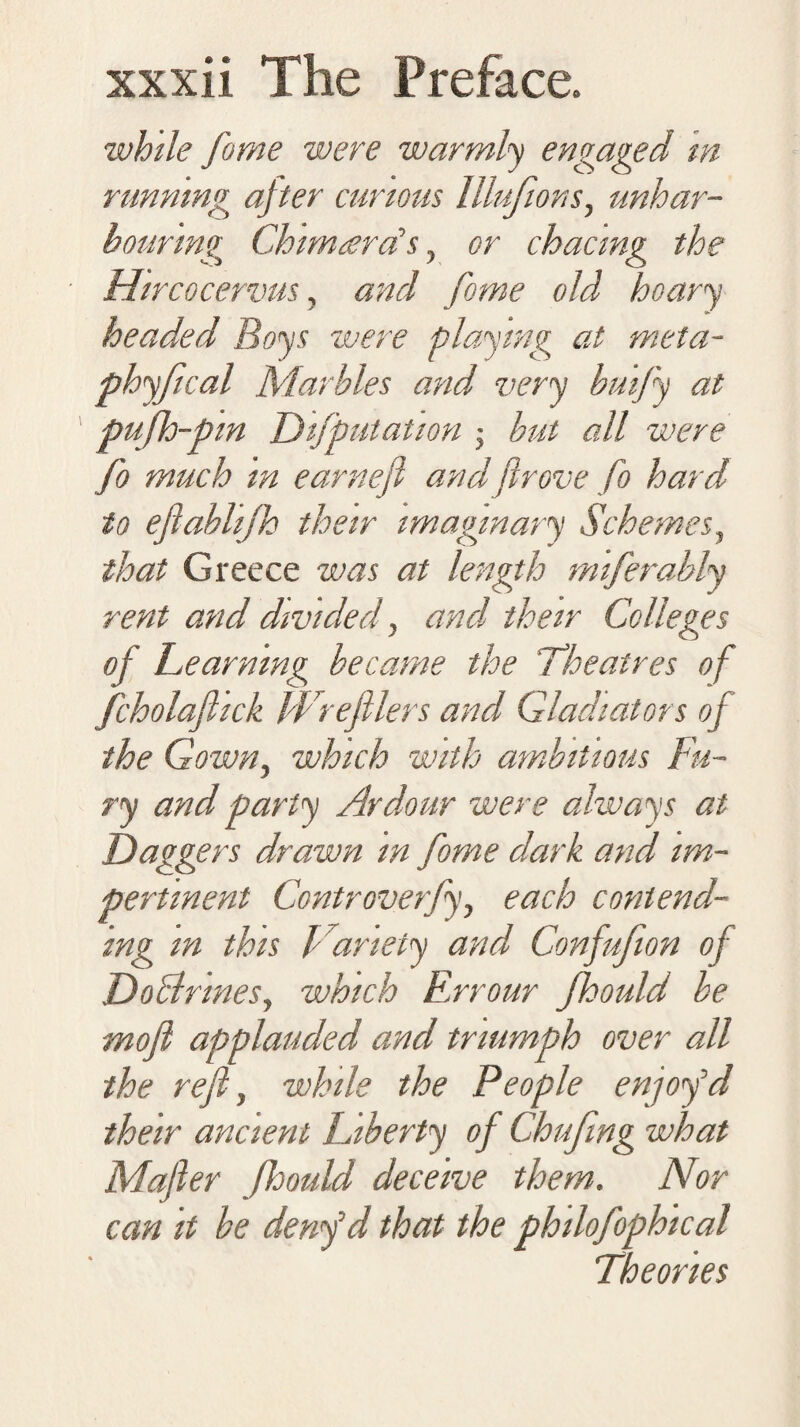 xxxii The Preface.
while ſome were warmly engaged in
running after curious Illuſions, unhar-
bouring Chimæra's, or chacing the
Hircocervus, and ſome old hoary
headed Boys were playing at meta-
phyſical Marbles and very buiſy at
puſh-pin Diſputation; but all were
ſo much in earneſt and ſtrove ſo hard
to eſtabliſh their imaginary Schemes,
that Greece was at length miſerably
rent and divided, and their Colleges
of Learning became the Theatres of
ſcholaſtick Wreſtlers and Gladiators of
the Gown, which with ambitious Fu-
ry and party Ardour were always at
Daggers drawn in ſome dark and im-
pertinent Controverſy, each contend-
ing in this Variety and Confuſion of
Doctrines, which Errour ſhould be
moſt applauded and triumph over all
the reſt, while the People enjoy'd
their ancient Liberty of Chuſing what
Maſter ſhould deceive them. Nor
can it be deny'd that the philoſophical
Theories